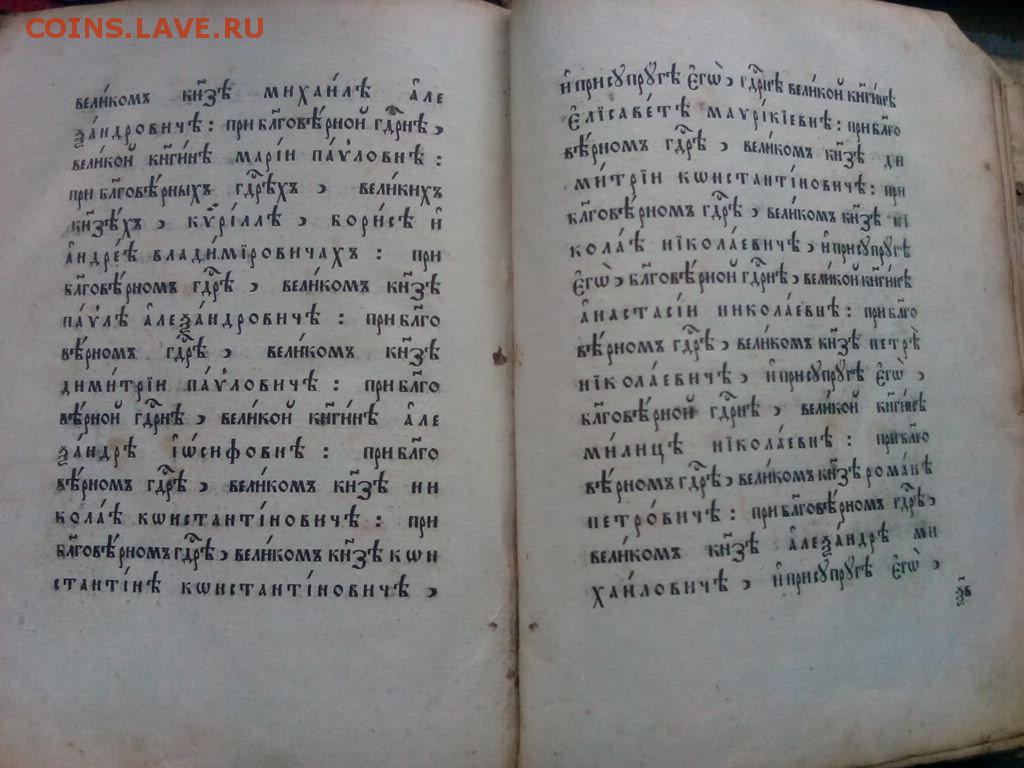 COINS.LAVE.RU
вели́комъ кн҃зѣ михаи́лѣ а҆ле
ѯа́ндровичѣ: при бл҃говѣ́рной гдⷭ҇рнѣ,
вели́кой кн҃ги́нѣ марі́и па́ѵловнѣ:
при бл҃говѣ́рныхъ гдⷭ҇рѣхъ, вели́кихъ
кн҃зѣ́хъ, кѷрі́ллѣ, бори́сѣ и҆
а҆ндре́ѣ влади́міровичахъ: при
бл҃говѣ́рномъ гдⷭ҇рѣ, вели́комъ кн҃зѣ
па́ѵлѣ а҆леѯа́ндровичѣ: при бл҃го
вѣ́рномъ гдⷭ҇рѣ, вели́комъ кн҃зѣ
дими́трїи па́ѵловичѣ: при бл҃го
вѣ́рной гдⷭ҇рнѣ, вели́кой кн҃ги́нѣ а҆ле
ѯа́ндрѣ і҆ѡ́сифовнѣ: при бл҃го
вѣ́рномъ гдⷭ҇рѣ, вели́комъ кн҃зѣ ни
кола́ѣ кѡнстанті́новичѣ: при
бл҃говѣ́рномъ гдⷭ҇рѣ, вели́комъ кн҃зѣ кѡн
станті́нѣ кѡнстанті́новичѣ,
и҆ при сꙋпрꙋ́гѣ є҆гѡ̀, гдⷭ҇рнѣ вели́кой кн҃ги́нѣ
є҆лїсаве́тѣ маѵрі́кїевнѣ: при бл҃го
вѣ́рномъ гдⷭ҇рѣ, вели́комъ кн҃зѣ ди
ми́трїи кѡнстанті́новичѣ: при
бл҃говѣ́рномъ гдⷭ҇рѣ, вели́комъ кн҃зѣ ні
кола́ѣ нїкола́евичѣ, и҆ при сꙋпрꙋ́гѣ
є҆гѡ̀, бл҃говѣ́рной гдⷭ҇рнѣ, вели́кой кн҃ги́нѣ
а҆настасі́и никола́евнѣ: при бл҃го
вѣ́рномъ гдⷭ҇рѣ, вели́комъ кн҃зѣ петрѣ̀
нїкола́евичѣ, и҆ при сꙋпрꙋ́гѣ є҆гѡ̀,
бл҃говѣ́рной гдⷭ҇рнѣ, вели́кой кн҃ги́нѣ
ми́лицѣ нїкола́евнѣ: при бл҃го
вѣ́рномъ гдⷭ҇рѣ, вели́комъ кн҃зѣ рома́нѣ
петро́вичѣ: при бл҃говѣ́рномъ гдⷭ҇рѣ,
вели́комъ кн҃зѣ а҆леѯа́ндрѣ ми
ха́иловичѣ, и҆ при сꙋпрꙋ́гѣ є҆гѡ̀,